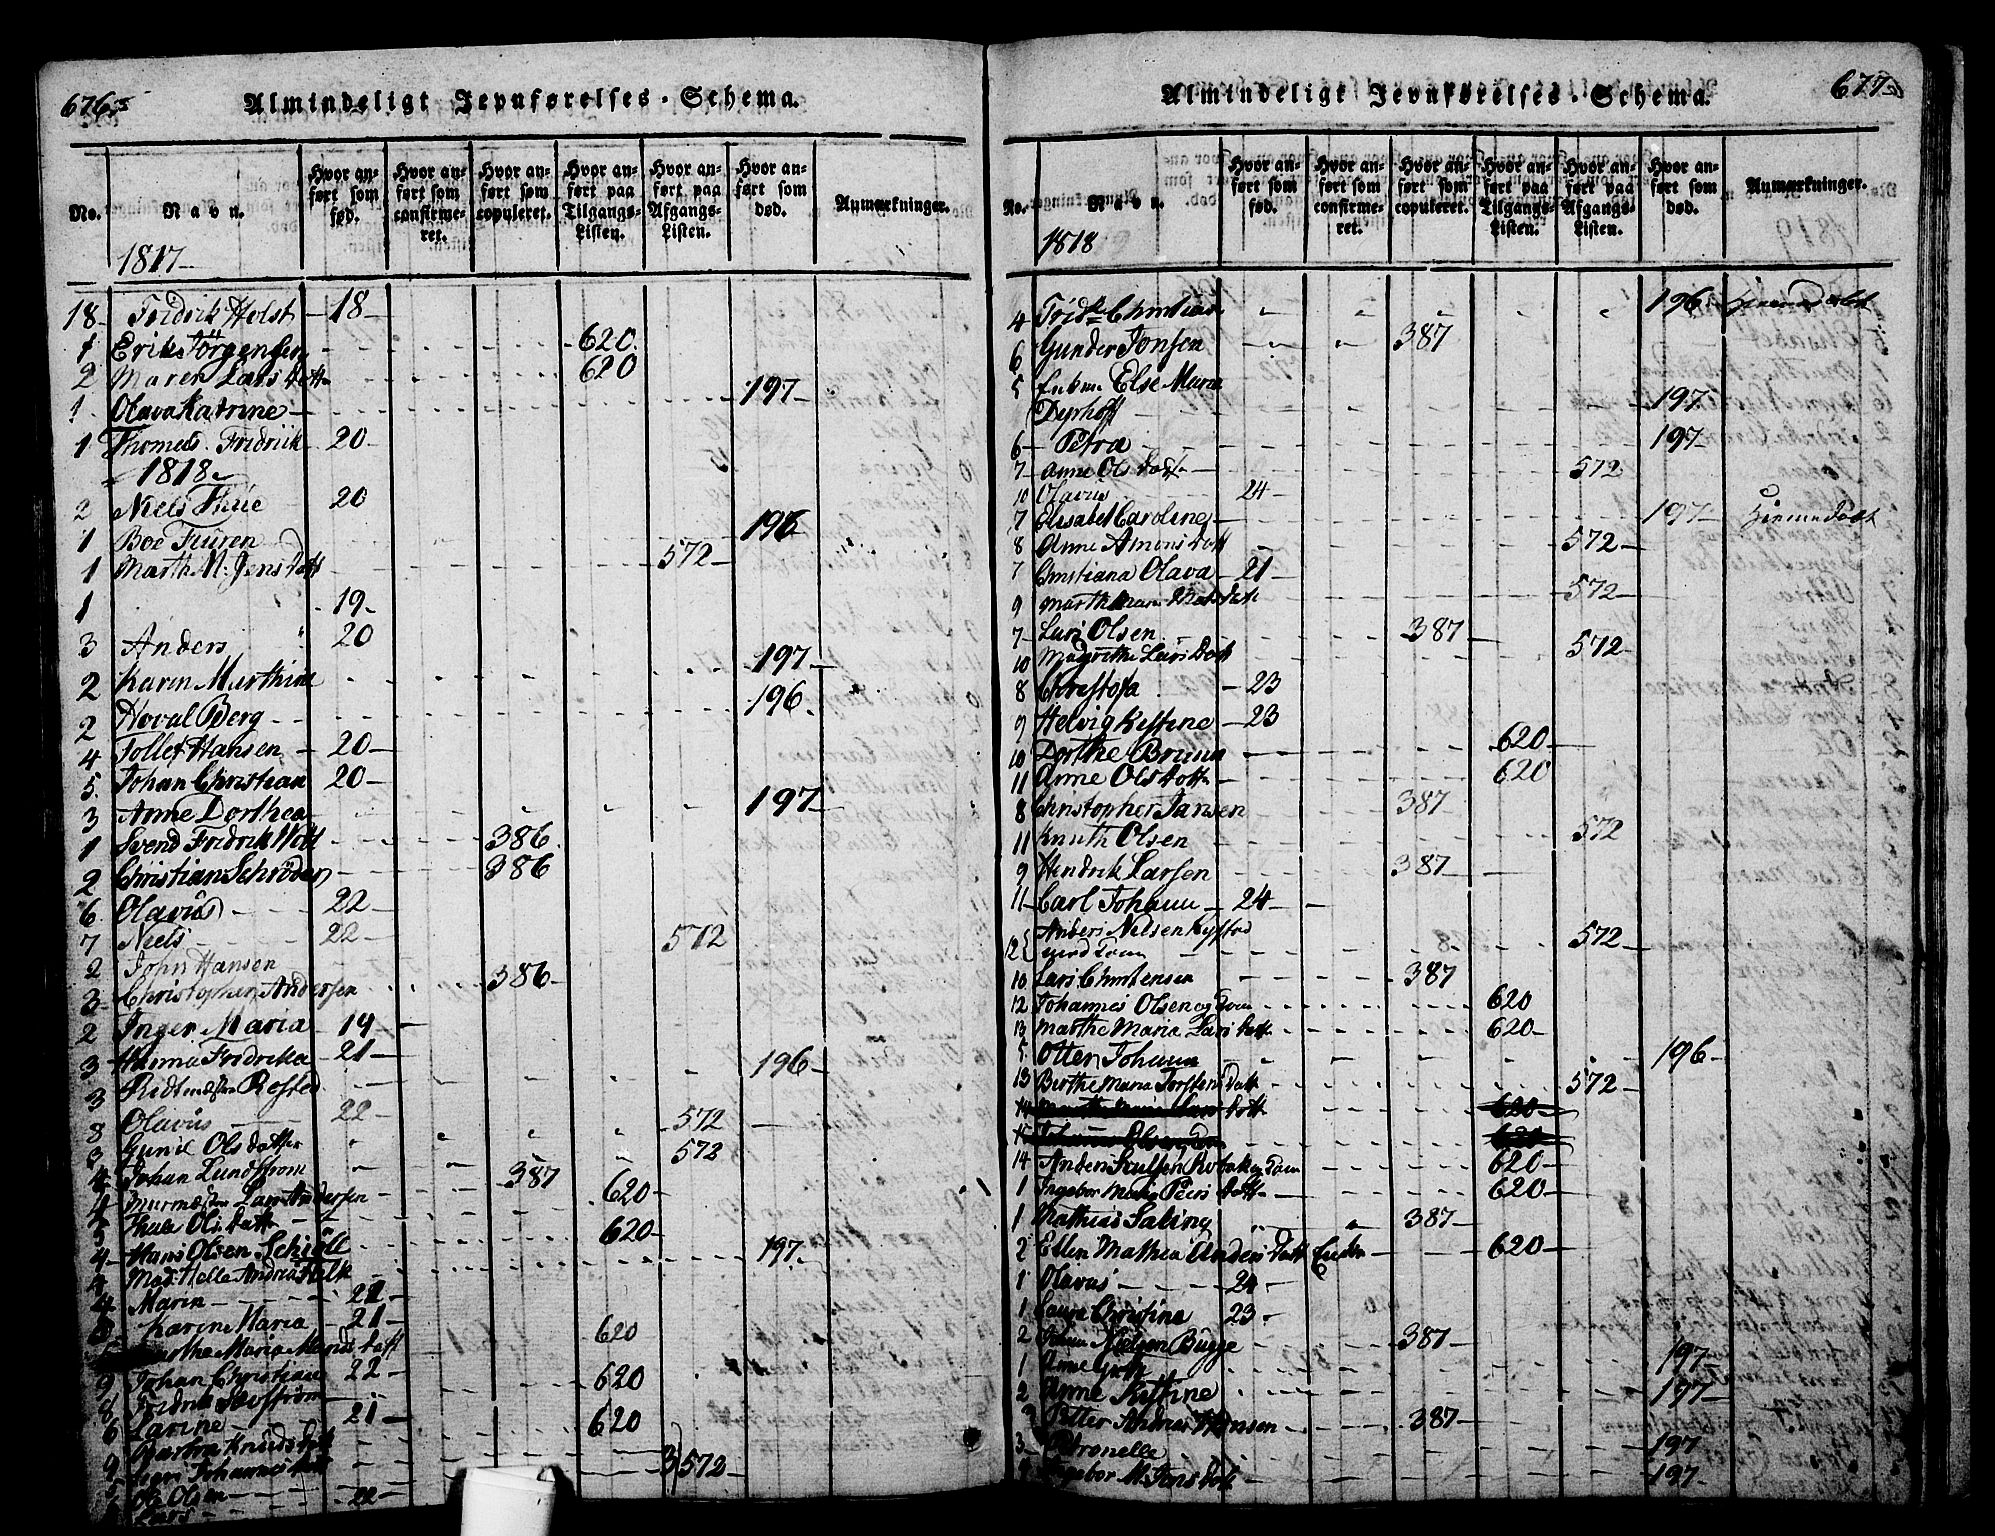 676
Almindeligt Jevnførelses-Schema.
No.
Navn.
Hvor anført som fød.
Hvor anført som confirmeret.
Hvor anført som copuleret.
Hvor anført paa Tilgangs-Listen.
Hvor anført paa Afgangs-Listen.
Hvor anført som død.
Anmærkninger.
1817
18 Fridrik Holst 18
1 Erik Jörgensen 620
2 Maren Lars dott 620
1 Olava Katrine 197
1 Thomas Fridrik 20
1818
2 Niels Thüe 20
1 Boe Furen 196
1 Marth M. Jens dott 572
1 19
3 Anders 20
2 Karen Marthine 197
2 Hoval Berg 196
4 Tollef Hansen 20
5 Johan Christian 20
3 Anne Dorthea 197
1 Svend Fridrik Wott 386
2 Christian Schröder 386
6 Olavus 22
7 Niels 22
2 John Hansen 572
3 Christopher Andersen 386
2 Inger Maria 19
3 Hanna Fridrika 21
3 Ridtmester Rosted 196
8 Olavus 22
3 Gunil Olsdatter 572
4 Johan Lundstrom 572
4 Murmester Lars Andersen 387
5 Olsdatt 620
4 Hans Olsen Schiöll 620
4 Mad: Helle Andrea Falk 197
4 Marin 21
Karen Maria 21
Marthe Maria dott 620
9 Johan Christian 22
8 Fridrik 620
6 Larine 21
Knudsdatt 620
9 Johannesdatt 572
5 Ole Olsen
Lars 22
677
Almindeligt Jevnførelses-Schema.
No.
Navn.
Hvor anført som fød.
Hvor anført som confirmeret.
Hvor anført som copuleret.
Hvor anført paa Tilgangs-Listen.
Hvor anført paa Afgangs-Listen.
Hvor anført som død.
Anmærkninger.
1818
4 Fridk Christian 196
6 Gunder Jonsen 387
5 Else Maria
Dyrhoff 197
6 Petra 197
7 Anne Ols datt 572
10 Olavus 24
7 Elisabet Caroline 197
8 Anne Amons dott 572
7 Christiana Olava 21
9 Marthe Maria Mats datt 572
7 Lars Olsen 387
10 Magrethe Lars dott 572
8 Christofa 23
9 Helvig Kistine 23
10 Dorthe Bruun 620
11 Anne Ols dott 620
8 Christopher Jansen 387
11 Knuth Olsen 572
9 Hendrik Larsen 387
11 Carl Johann 24
12 Anders Nilsen 572
10 Lars Christensen 387
12 Johannes Olsen og Fam 620
13 Marthe Maria Lars dott 620
5 Otter Johann 196
13 Birthe Maria Torstens datt 572
14 dott 620
15 620
14 Anders og Fam 620
1 Ingebor Maria Peers dott 620
1 Mathias Saling 387
2 Ellen Mathea Anders datt 620
1 Olavus 24
1 Laura Christine 23
2 Nielsen Bugge 387
1 Anne 197
2 Anne Kistine 197
Petter Andreas Hansen 387
3 Petronelle 197
4 Ingebor M. Jons datt 197